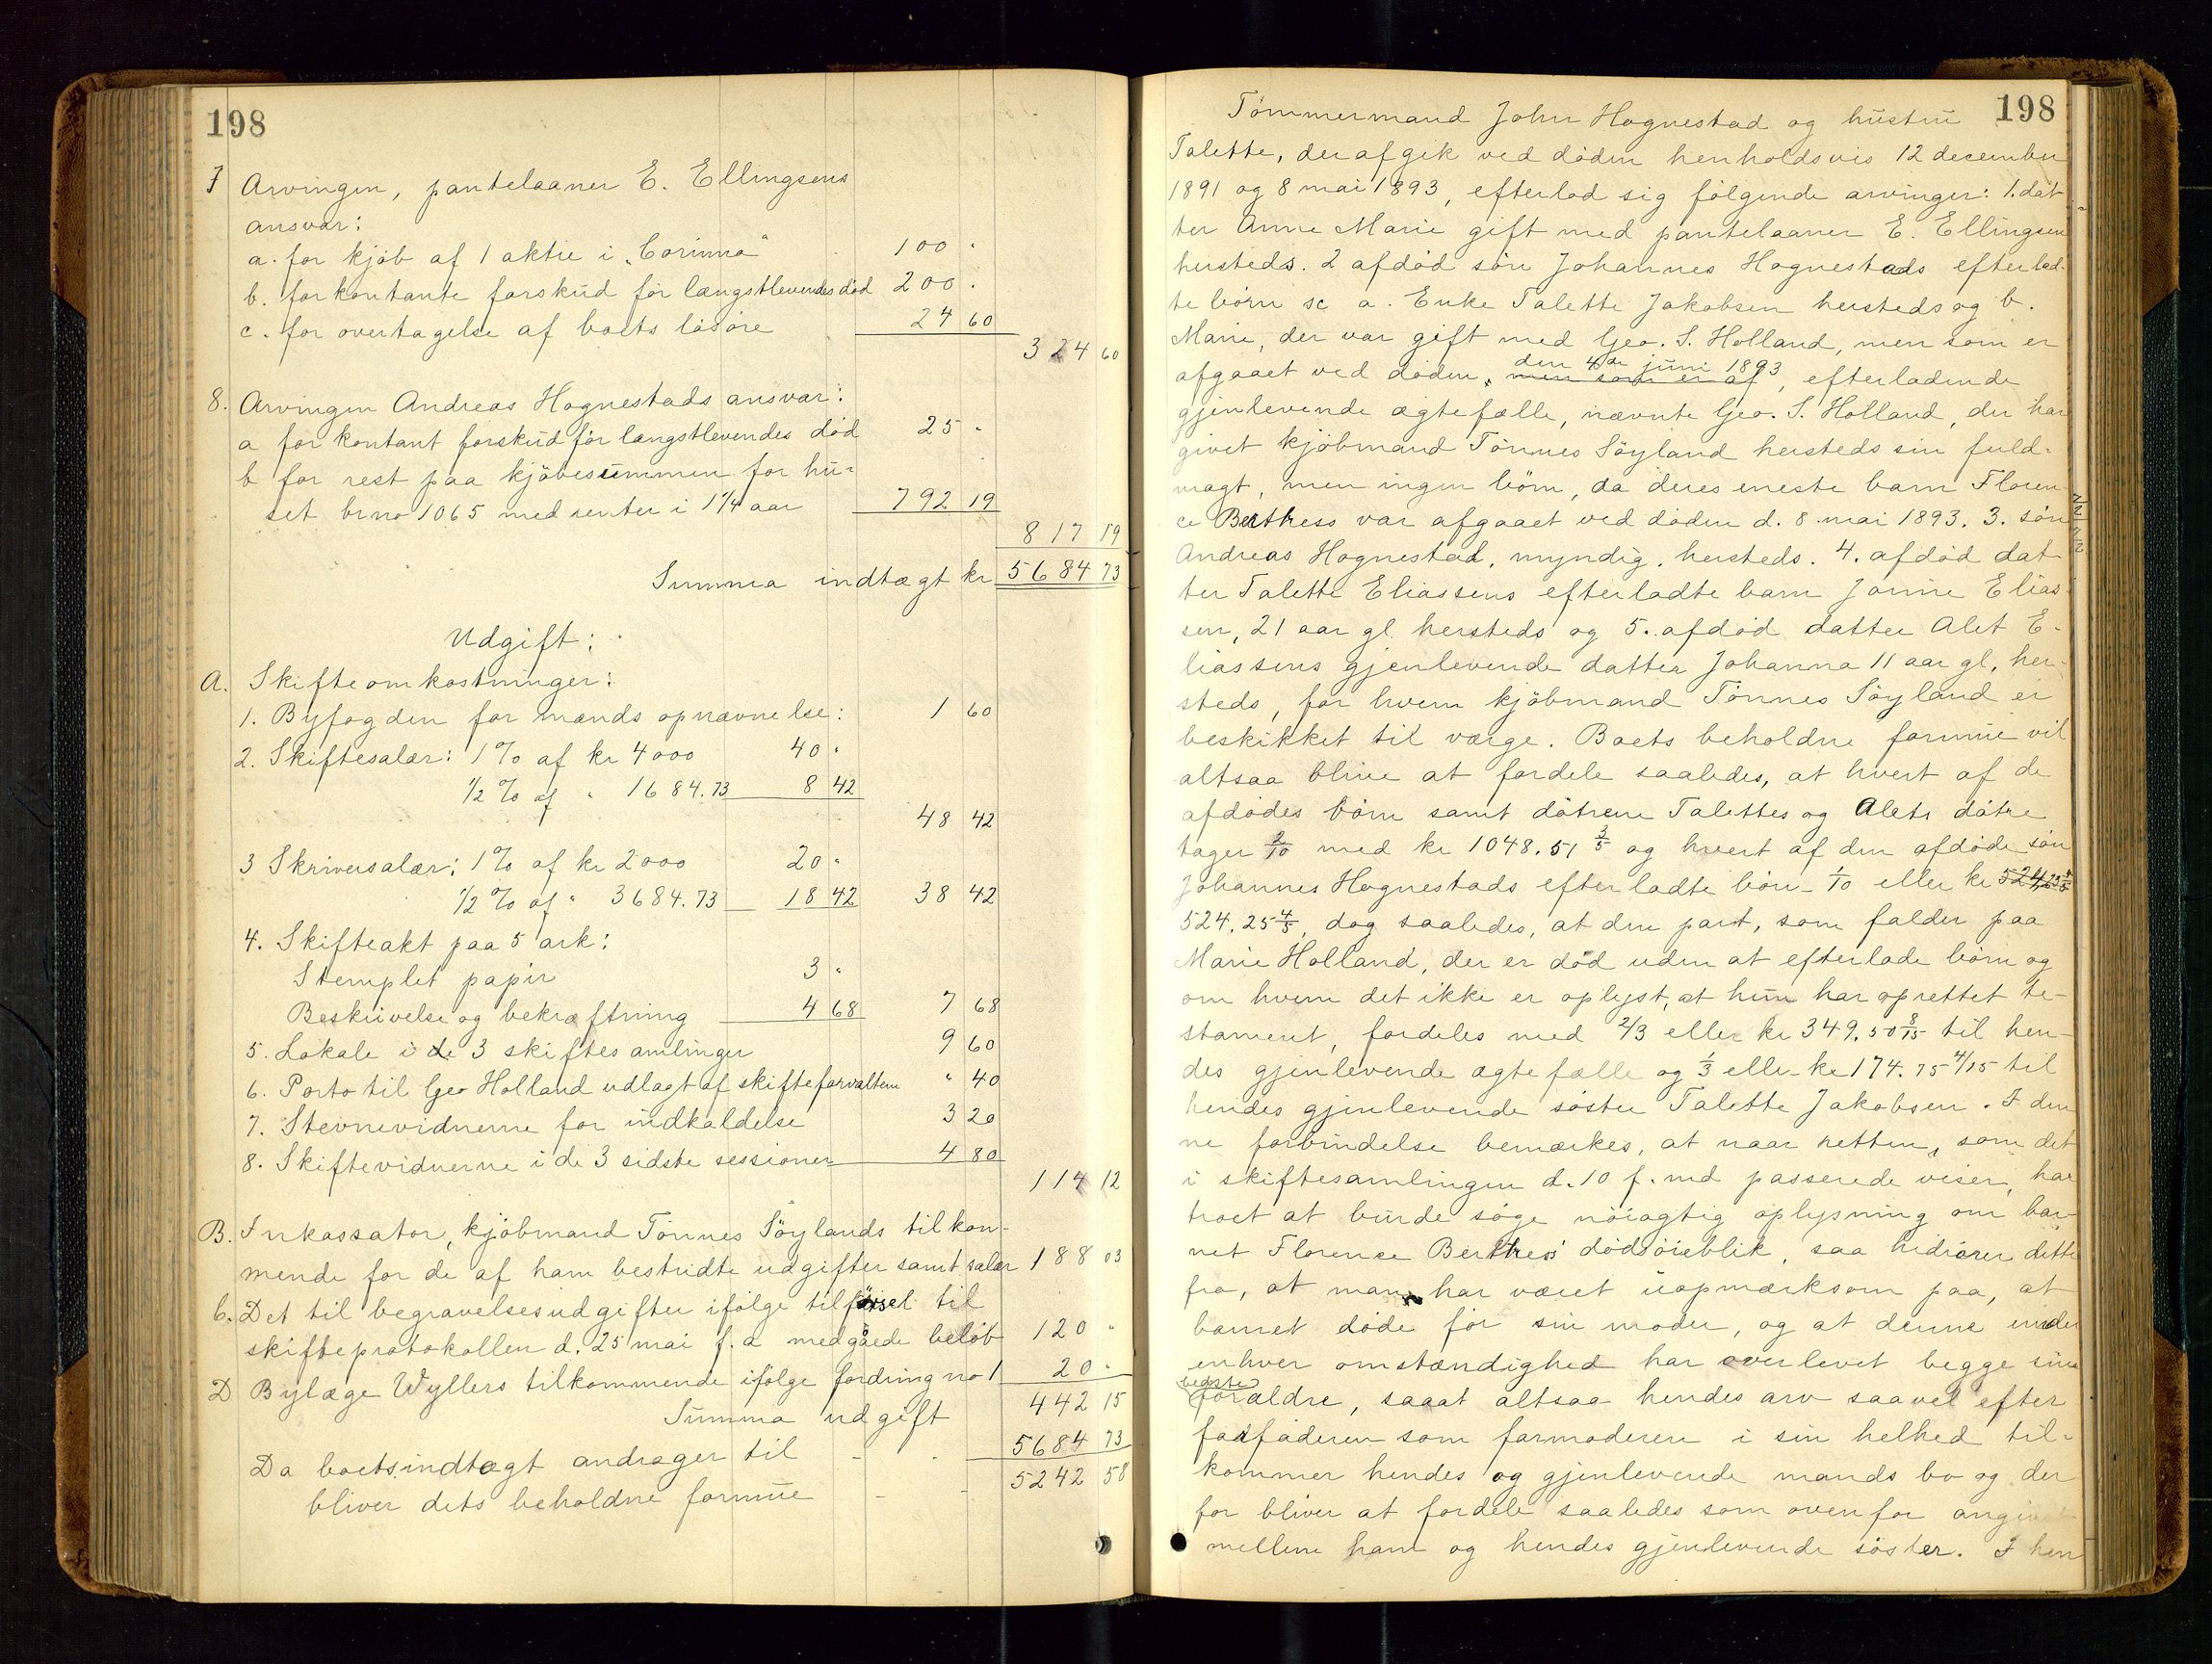 198
7 Arvingen, pantelaaner E. Ellingsens
ansvar:
a. for kjøb af 1 aktie i „Corinna" 100 "
b. for kontante forskud før længstlevendes død 200 "
c. for overtagelse af boets løsøre 24 60
324 60
8. Arvingen Andreas Hognestads ansvar:
a for kontant forskud før længstlevendes død 25 "
b for rest paa kjøbesummen for hu-
set brno 1065 med renter i 1 1/4 aar 792 19
817 19
Summa indtægt kr 5684 73
Udgift:
A. Skifteomkostninger:
1. Byfogden for mænds opnævnelse: 1 60
2. Skiftesalær: 1% af kr 4000 40 "
1/2 % af " 1684.73 8 42
48 42
3 Skriversalær: 1% af kr 2000 20 "
1/2 % af " 3684.73 18 42 38 42
4. Skifteakt paa 5 ark:
Stemplet papir 3 "
Beskrivelse og bekræftning 4 68 7 68
5. Lokale i de 3 skiftesamlinger 9 60
6. Porto til Geo Holland udlagt af skifteforvalteren " 40
7. Stevnevidnerne for indkaldelse 3 20
8. Skiftevidnerne i de 3 sidste sessioner 4 80
114 12
B. Inkassator, kjøbmand Tønnes Søylands tilkom-
mende for de af ham bestridte udgifter samt salær 188 03
C. Det til begravelsesudgifter ifølge tilførsel til
skifteprotokollen d. 25 mai f. a medgåede beløb 120 "
D Bylæge Wyllers tilkommende ifølge fordring no 1 20 "
Summa udgift 442 15
Da boets indtægt andrager til - - 5684 73
bliver dets beholdne formue - - 5242 58
198
Tømmermand John Hognestad og hustru
Talette, der afgik ved døden henholdsvis 12 december
1891 og 8 mai 1893, efterlod sig følgende arvinger: 1. dat-
ter Anne Marie gift med pantelaaner E. Ellingsen
hersteds. 2 afdød søn Johannes Hognestads efterlad-
te børn sc a. Enke Talette Jakobsen hersteds og b.
Marie, der var gift med Geo. S. Holland, men som er
den 4de juni 1893
afgaaet ved døden, men som er af, efterladende
gjenlevende ægtefælle, nævnte Geo. S. Holland, der har
givet kjøbmand Tønnes Søyland hersteds sin fuld-
magt, men ingen børn, da deres eneste barn Floren-
ce Berthess var afgaaet ved døden d. 8 mai 1893. 3. søn
Andreas Hognestad, myndig, hersteds. 4. afdød dat-
ter Talette Eliassens efterladte barn Jonne Elias-
sen, 21 aar gl. hersteds og 5. afdød datter Alet E-
liassens gjenlevende datter Johanna 11 aar gl, her-
steds, for hvem kjøbmand Tønnes Søyland er
beskikket til værge. Boets beholdne formue vil
altsaa blive at fordele saaledes, at hvert af de
afdødes børn samt døtrene Talettes og Alets døtre
tager 2/10 med kr 1048.51 3/5 og hvert af den afdøde søn
Johannes Hognestads efterladte børn 1/10 eller kr 524,25 4/5
524.25 4/5, dog saaledes, at den part, som falder paa
Marie Holland, der er død uden at efterlade børn og
om hvem det ikke er oplyst, at hun har oprettet te-
stament, fordeles med 2/3 eller kr 349.50 8/15 til hen-
des gjenlevende ægtefælle og 1/3 eller kr 174.75 4/15 til
hendes gjenlevende søster Talette Jakobsen. I den-
ne forbindelse bemærkes, at naar retten, som det
i skiftesamlingen d. 10 f. md passerede viser, har
troet at burde søge nøiagtig oplysning om bar-
net Florence Berthess' dødsøieblik, saa hidrører dette
fra, at man har været uopmærksom paa, at
barnet døde før sin moder, og at denne under
enhver omstændighed har overlevet begge sine
bedste
forældre, saaat altsaa hendes arv saavel efter
farfaderen som farmoderen i sin helhed til-
kommer hendes og gjenlevende mands bo og der-
for bliver at fordele saaledes som ovenfor angivet
mellem ham og hendes gjenlevende søster. I hen